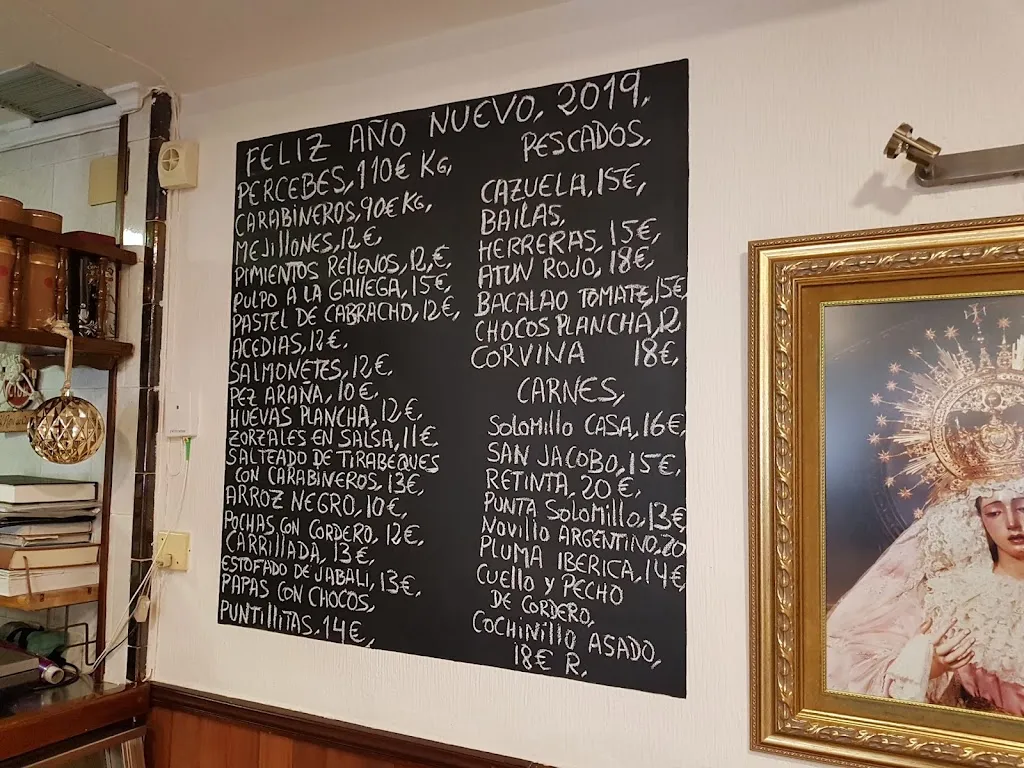 FELIZ AÑO NUEVO, 2019,
PERCEBES, 110€ KG,
CARABINEROS, 90€ KG,
MEJILLONES, 12€,
PIMIENTOS RELLENOS, 12,€,
PULPO A LA GALLEGA, 15€,
PASTEL DE CABRACHO, 12€,
ACEDIAS, 12€,
SALMONETES, 12€,
PEZ ARAÑA, 10€,
HUEVAS PLANCHA, 12€,
ZORZALES EN SALSA, 11€
SALTEADO DE TIRABEQUES
CON CARABINEROS, 13€,
ARROZ NEGRO, 10€,
POCHAS CON CORDERO, 12€,
CARRILLADA, 13€,
ESTOFADO DE JABALI, 13€,
PAPAS CON CHOCOS,
PUNTILLITAS, 14€,
PESCADOS,
CAZUELA, 15€,
BAILAS,
HERRERAS, 15€,
ATUN ROJO, 18€,
BACALAO TOMATE, 15€
CHOCOS PLANCHA, 12
CORVINA 18€,
CARNES,
SOLOMILLO CASA, 16€,
SAN JACOBO, 15€,
RETINTA, 20€,
PUNTA SOLOMILLO, 13€
NOVILLO ARGENTINO, 20
PLUMA IBERICA, 14€,
CUELLO Y PECHO
DE CORDERO,
COCHINILLO ASADO,
18€ R.